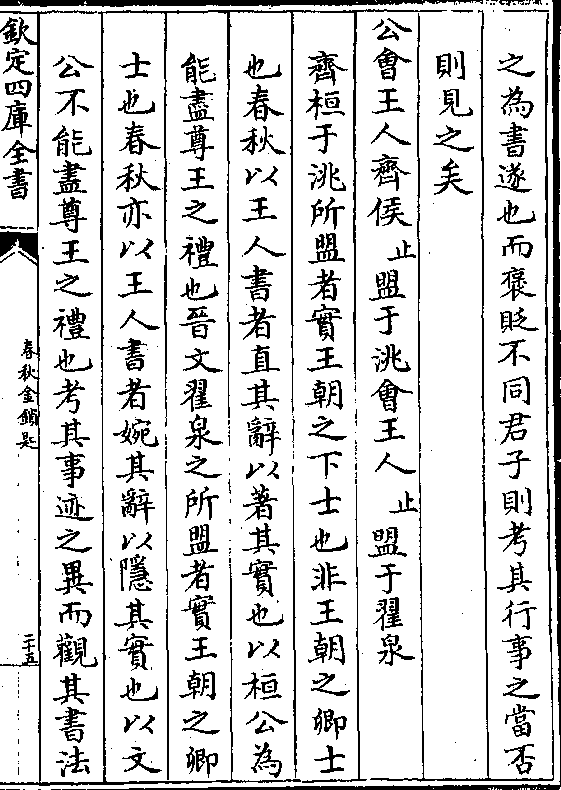 之為書遂也而褒貶不同君子則考其行事之當否
則見之矣
公會王人齊侯止盟于洮會王人止盟于翟泉
齊桓于洮所盟者實王朝之下士也非王朝之卿士
也春秋以王人書者直其辭以著其實也以桓公為
能盡尊王之禮也晉文翟泉之所盟者實王朝之卿
士也春秋亦以王人書者婉其辭以隱其實也以文
公不能盡尊王之禮也考其事迹之異而觀其書法
欽定四庫全書
春秋金鎖匙
二十五